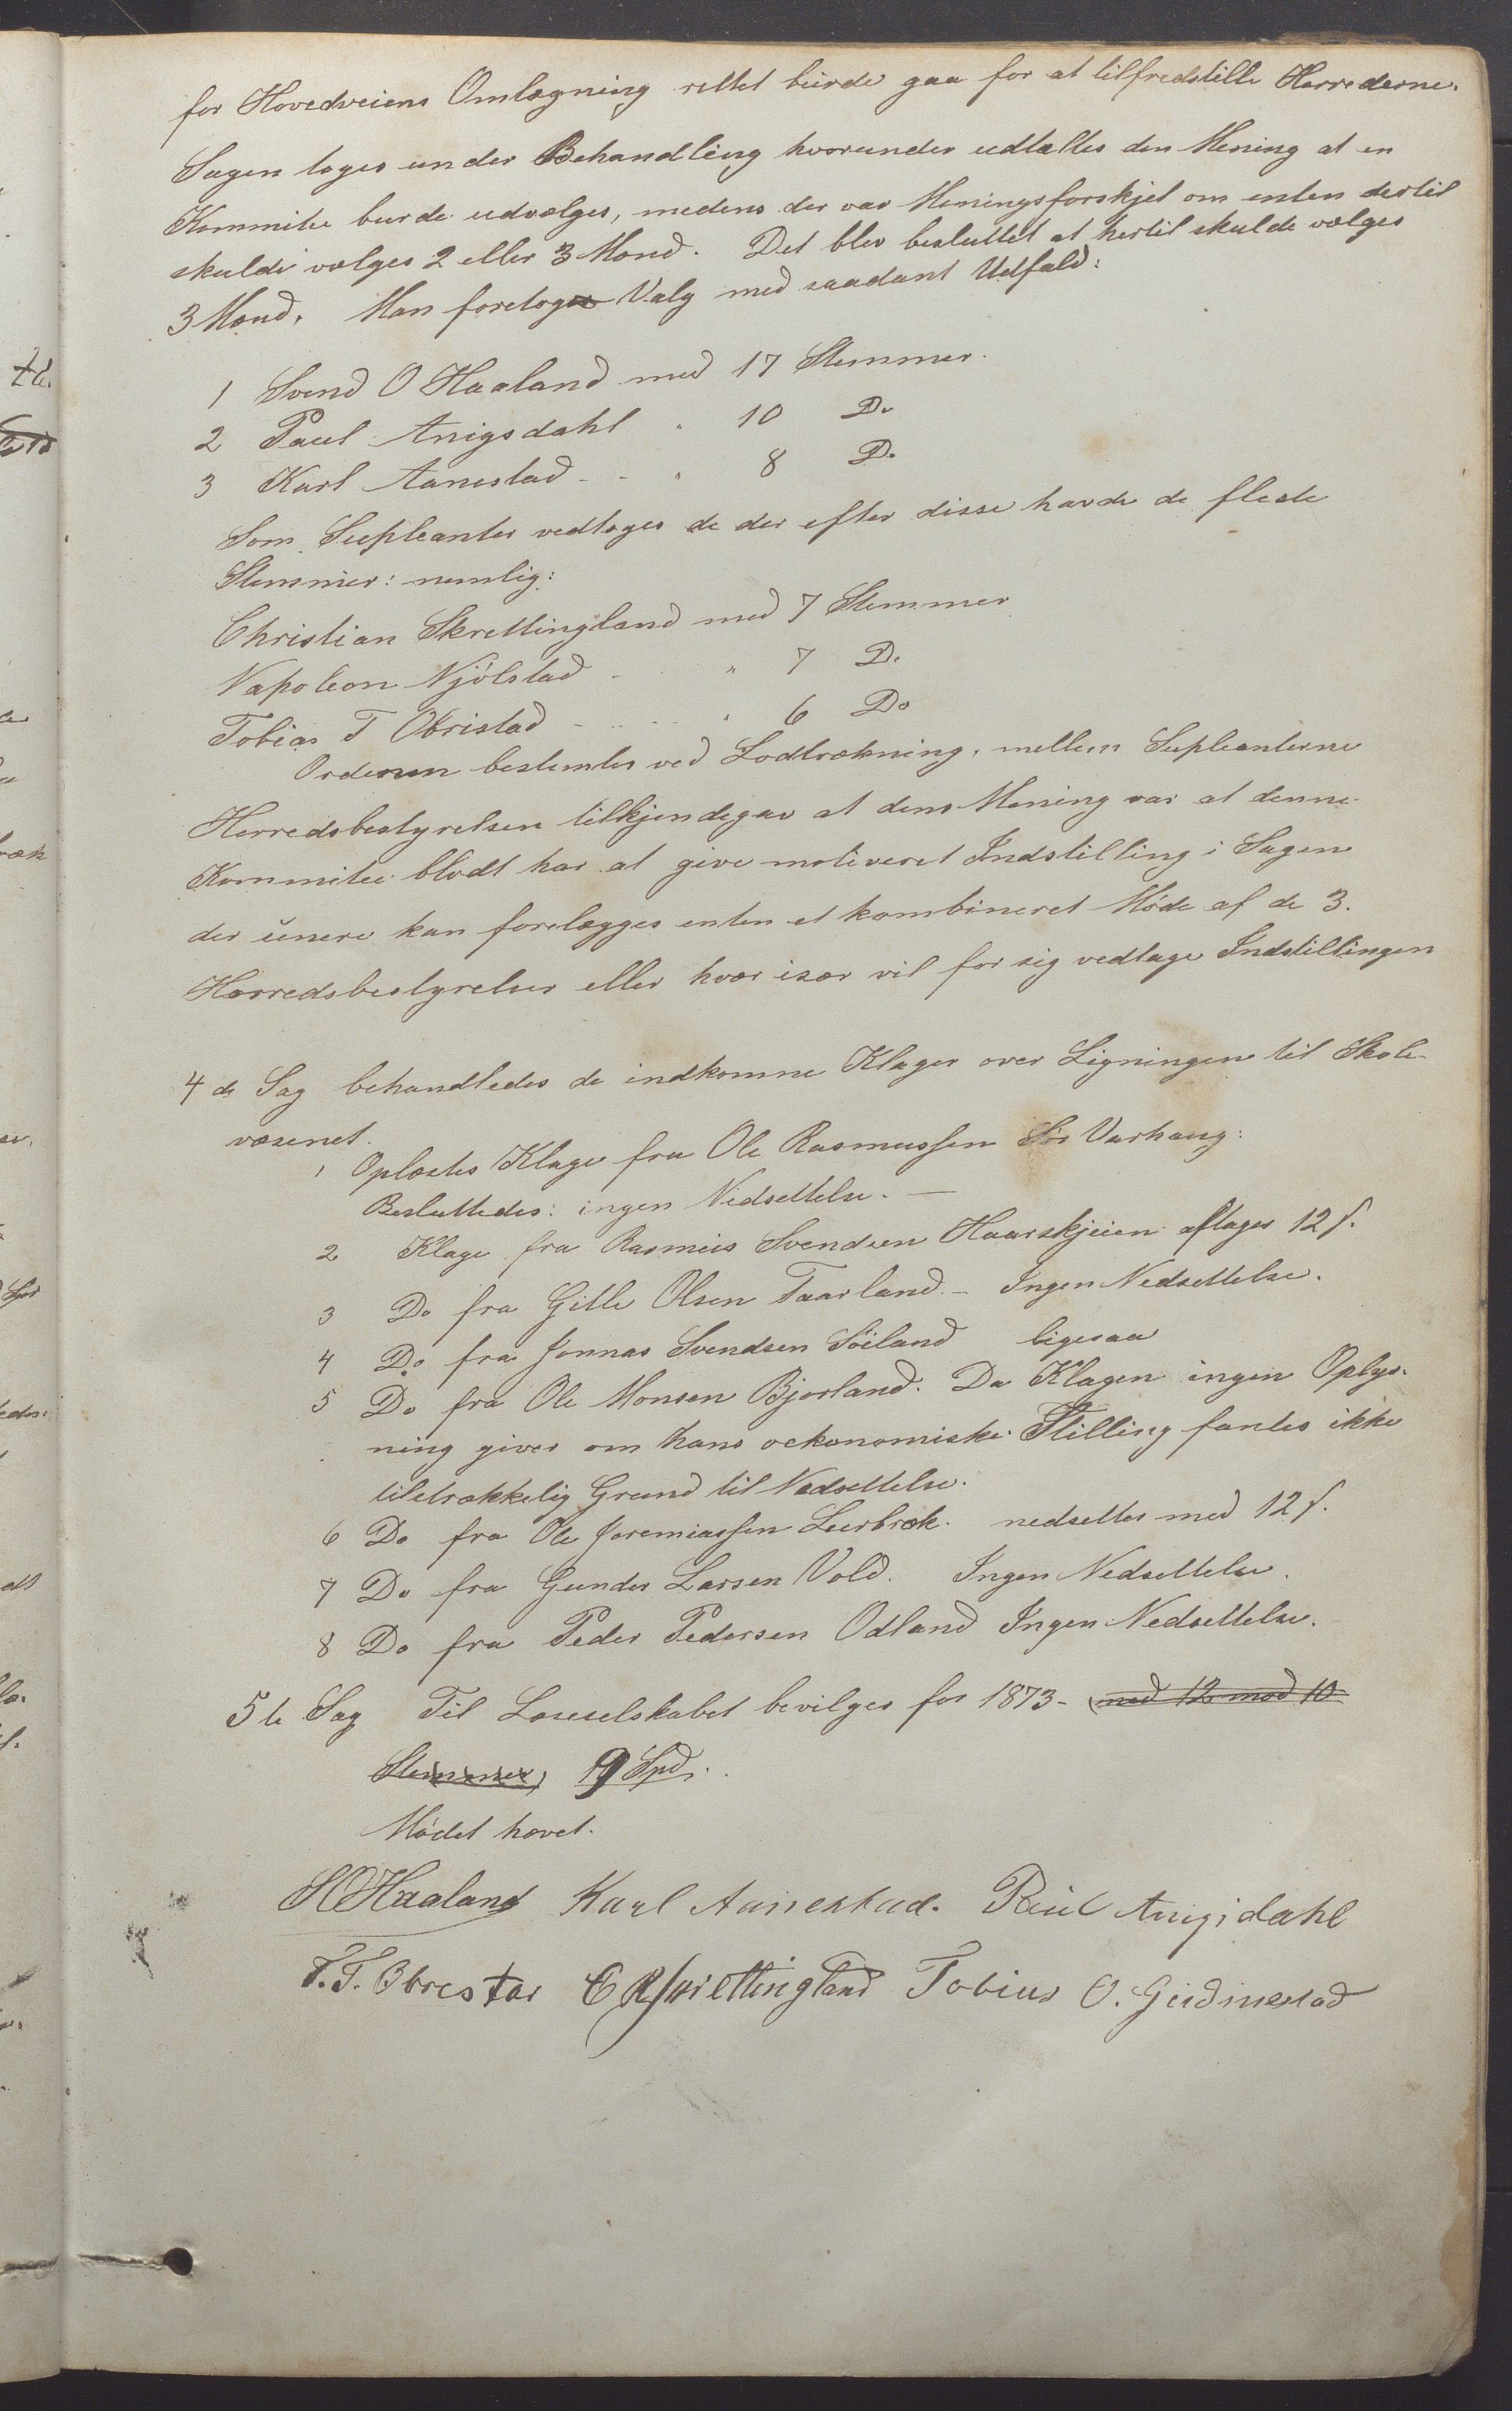 for Hovedveiens Omlægning rettet burde gaa for at tilfredstille Herrederne.
Sagen toges under Behandling hvorunder udtaltes den Mening at en
Kommitee burde udvælges, medens der var Meningsforskjel om enten dertil
skulde vælges 2 eller 3 Mænd. Det blev besluttet at hertil skulde vælges
3 Mænd. Man foretog Valg med saadant Udfald:
1 Svend O Haaland med 17 Stemmer.
2 Paul Anigsdahl " 10 Do
3 Karl Aanestad - - " 8 Do
Som Supleanter vedtoges de der efter disse havde de fleste
Stemmer: nemlig:
Christian Skrettingland med 7 Stemmer
Napoleon Njølstad - " 7 Do
Tobias T Obristad - - " 6 Do
Ordenen bestemtes ved Lodtrækning, mellem Supleanterne
Herredsbestyrelsen tilkjendegav at dens Mening var at denne
Kommitee blodt har at give motiveret Indstilling i Sagen
der senere kan forelægges enten et kombineret Møde af de 3.
Herredsbestyrelser eller hver især vil for sig vedtage Indstillingen
4 de Sag behandledes de indkomne Klager over Ligningen til Skole-
væsenet.
1 Oplæstes Klage fra Ole Rasmussen Sør Varhaug:
Besluttedes: ingen Nedsettelse. —
2 Klage fra Rasmus Svendsen Haarskjeien aftages 12 f.
3 Do fra Gitle Olsen Taarland. - Ingen Nedsettelse.
4 Do fra Jonnas Svendsen Söiland ligesaa
5 Do fra Ole Monsen Bjorland. Da Klagen ingen Oplys-
ning giver om hans oekonomiske Stilling fantes ikke
tilstrækkelig Grund til Nedsettelse.
6 Do fra Ole Joremiassen Leerbræk. nedsettes med 12 f.
7 Do fra Gunder Larsen Vold. Ingen Nedsettelse.
8 Do fra Peder Pedersen Odland Ingen Nedsettelse.
5te Sag Til Læseselskabet bevilges for 1873 - med 12 mod 10
Stemmer, 9 Spd.
Mødet hævet.
SOHaaland Karl Aanestad. Paul Anigsdahl
T.T. Obrestad C R Skrettingland Tobias O. Gudmestad